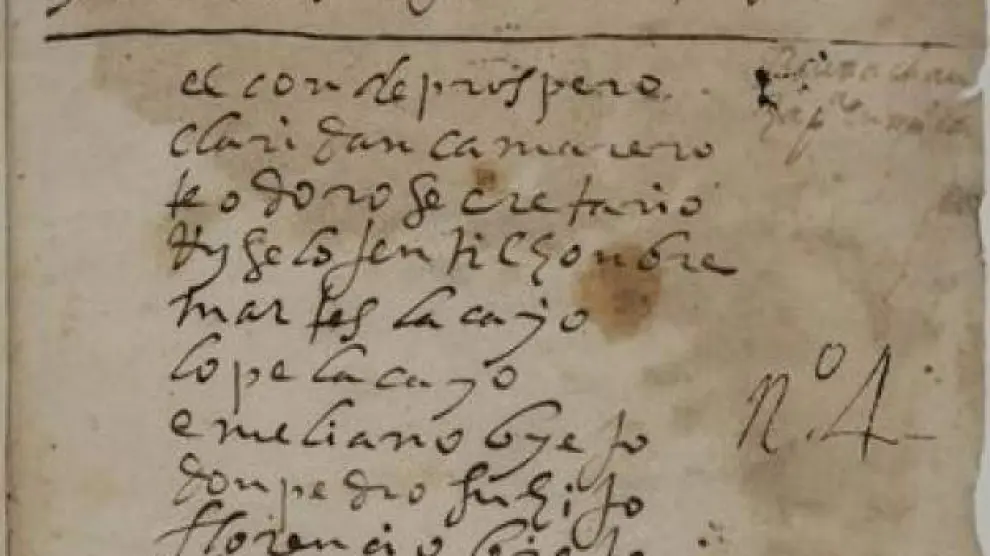 el conde prospero
claridan camarero
teodoro secretario
jentilhonbre
martes lacayo
lope lacayo
emeliano byejo
don pedro su hijo
florencio
nº 4